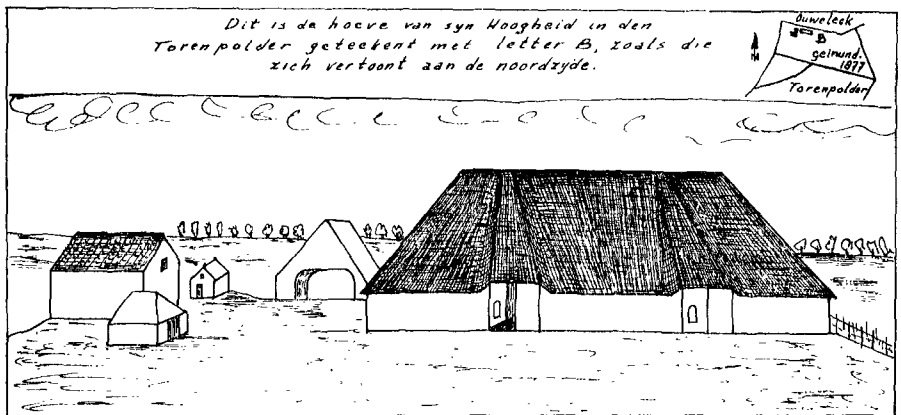 Dit is de hoeve van syn Hoogheid in den
Torenpolder geteekent met letter B, zoals die
zich vertoont aan de noordzyde.
Ouweleek
B
gelmund.
1877
N
Torenpolder